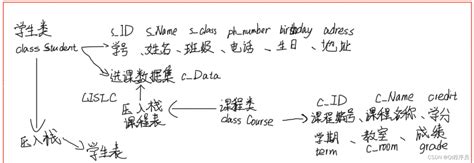 学生类 s_ID s_Name s_class ph_number birthday adress
class Student 学号、姓名、班级、电话、生日、地址
选课数据集 c_Data
LIST
压入栈 课程类 C_ID C_Name credit
课程表 class Course 课程编号、课程名称、学分
压入栈 学生表 学期 教室 成绩
term c_room grade